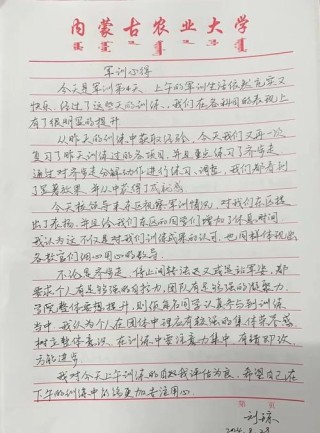 内蒙古农业大学
军训心得
今天是军训第4天，上午的军训生活依然充实又
快乐，经过了这些天的训练，我们在各科目的表现上
有了很明显的提升
从昨天的训练中获取经验，今天我们又再一次
复习了昨天训练过的各项目，并且重点练习了齐步走，
通过对齐步走分解动作进行练习、调整，我们都看到
了显著效果，并从中获得了成就感
今天校领导来各区视察军训情况，对我们在区提
出了表扬，并且给我们在区的同学们增加了休息时间
我认为这不仅是对我们训练成果的认可，也同样体现出
各教官们用心用心的教导
不论是齐步走、停止间转法又或是站军姿，都
要求个人有足够强的自控力，团队有足够强的凝聚力，
方阵整体要想提升，则依每名同学认真参与到训练
当中，我认为个人在团体中理应有较强的集体荣誉感，
树立整体意识，在训练中要注意力集中，有错即改，
方能进步
我对今天上午训练的自我评估为良，希望自己在
下午的训练中能够更加专注用心
第 页